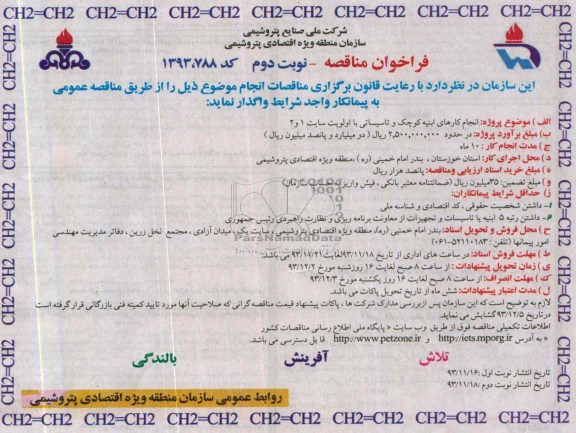 CH2=CH2 CH2=CH2 CH2=CH2 CH2=CH2 CH2=CH2 CH2=CH2 CH2=CH2
شرکت ملی صنایع پتروشیمی
سازمان منطقه ویژه اقتصادی پتروشیمی
فراخوان مناقصه - نوبت دوم کد ۱۳۹۳،۷۸۸
این سازمان در نظر دارد با رعایت قانون برگزاری مناقصات انجام موضوع ذیل را از طریق مناقصه عمومی
به پیمانکار واجد شرایط واگذار نماید:
الف) موضوع پروژه: انجام کارهای ابنیه کوچک و تاسیساتی با اولویت سایت ۱ و ۲
ب) مبلغ برآورد پروژه: در حدود ۲,۵۰۰,۰۰۰,۰۰۰ ریال ( دو میلیارد و پانصد میلیون ریال )
ج) مدت انجام کار: ۱۰ ماه
د) محل اجرای کار: استان خوزستان ، بندر امام خمینی (ره) ،منطقه ویژه اقتصادی پتروشیمی
ه) مبلغ خرید اسناد ارزیابی ومناقصه: پانصد هزار ریال
و) مبلغ تضمین: ۳۵میلیون ریال (ضمانتنامه معتبر بانکی ، فیش واریز سازمان
ز) حداقل شرایط پیمانکاران:
- داشتن شخصیت حقوقی ، کد اقتصادی و شناسه ملی
- داشتن رتبه ۵ ابنیه یا تاسیسات و تجهیزات از معاونت برنامه ریزی و نظارت راهبردی رئیس جمهوری
ح) محل فروش و تحویل اسناد: بندر امام خمینی (ره)، منطقه ویژه اقتصادی پتروشیمی ، سایت یک، میدان آزادی ، مجتمع نخل زرین ، دفاتر مدیریت مهندسی
امور پیمانها (تلفن : ۵۲۱۱۰۱۸۳-۰۶۱)
ط) مهلت فروش اسناد: در ساعت های اداری از تاریخ ۹۳/۱۱/۱۸ لغایت ۹۳/۱۱/۲۱ می باشد.
ی) زمان تحویل پیشنهادات : از ساعت ۸ صبح لغایت ۱۶ روز شنبه مورخ ۹۳/۱۲/۲
ک) مهلت انصراف: از ساعت ۸ صبح لغایت ۱۶ روز یکشنبه مورخ ۹۳/۱۲/۳
ل) مدت اعتبار پیشنهادات: شش ماه از تاریخ تحویل پاکات می باشد.
لازم به توضیح است که این سازمان پس از بررسی مدارک شرکت ها ، پاکات پیشنهاد قیمت مناقصه گرانی که صلاحیت آنها مورد تایید کمیته فنی بازرگانی قرار گرفته است
در تاریخ ۹۳/۱۲/۵ گشایش می نماید.
اطلاعات تکمیلی مناقصه فوق از طریق وب سایت « پایگاه ملی اطلاع رسانی مناقصات کشور
» به آدرس http://iets.mporg.ir و http://www.petzone.ir قابل دسترسی می باشد.
تلاش آفرینش بالندگی
تاریخ انتشار نوبت اول :۹۳/۱۱/۱۶
تاریخ انتشار نوبت دوم :۹۳/۱۱/۱۸
روابط عمومی سازمان منطقه ویژه اقتصادی پتروشیمی
ParsNamadData
CH2=CH2 CH2=CH2 CH2=CH2 CH2=CH2 CH2=CH2 CH2=CH2 CH2=CH2